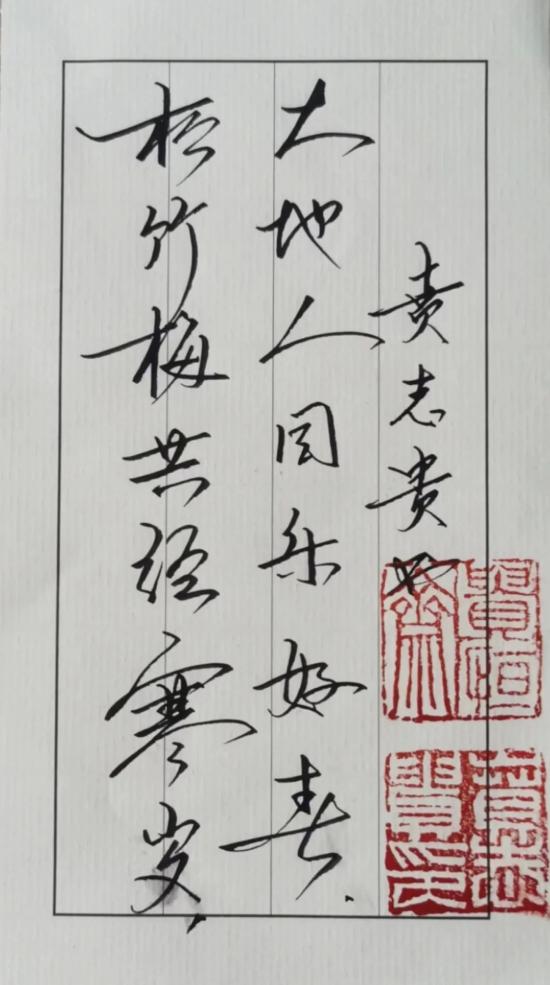 松竹梅共经寒岁
天地人同乐好春
志贵书